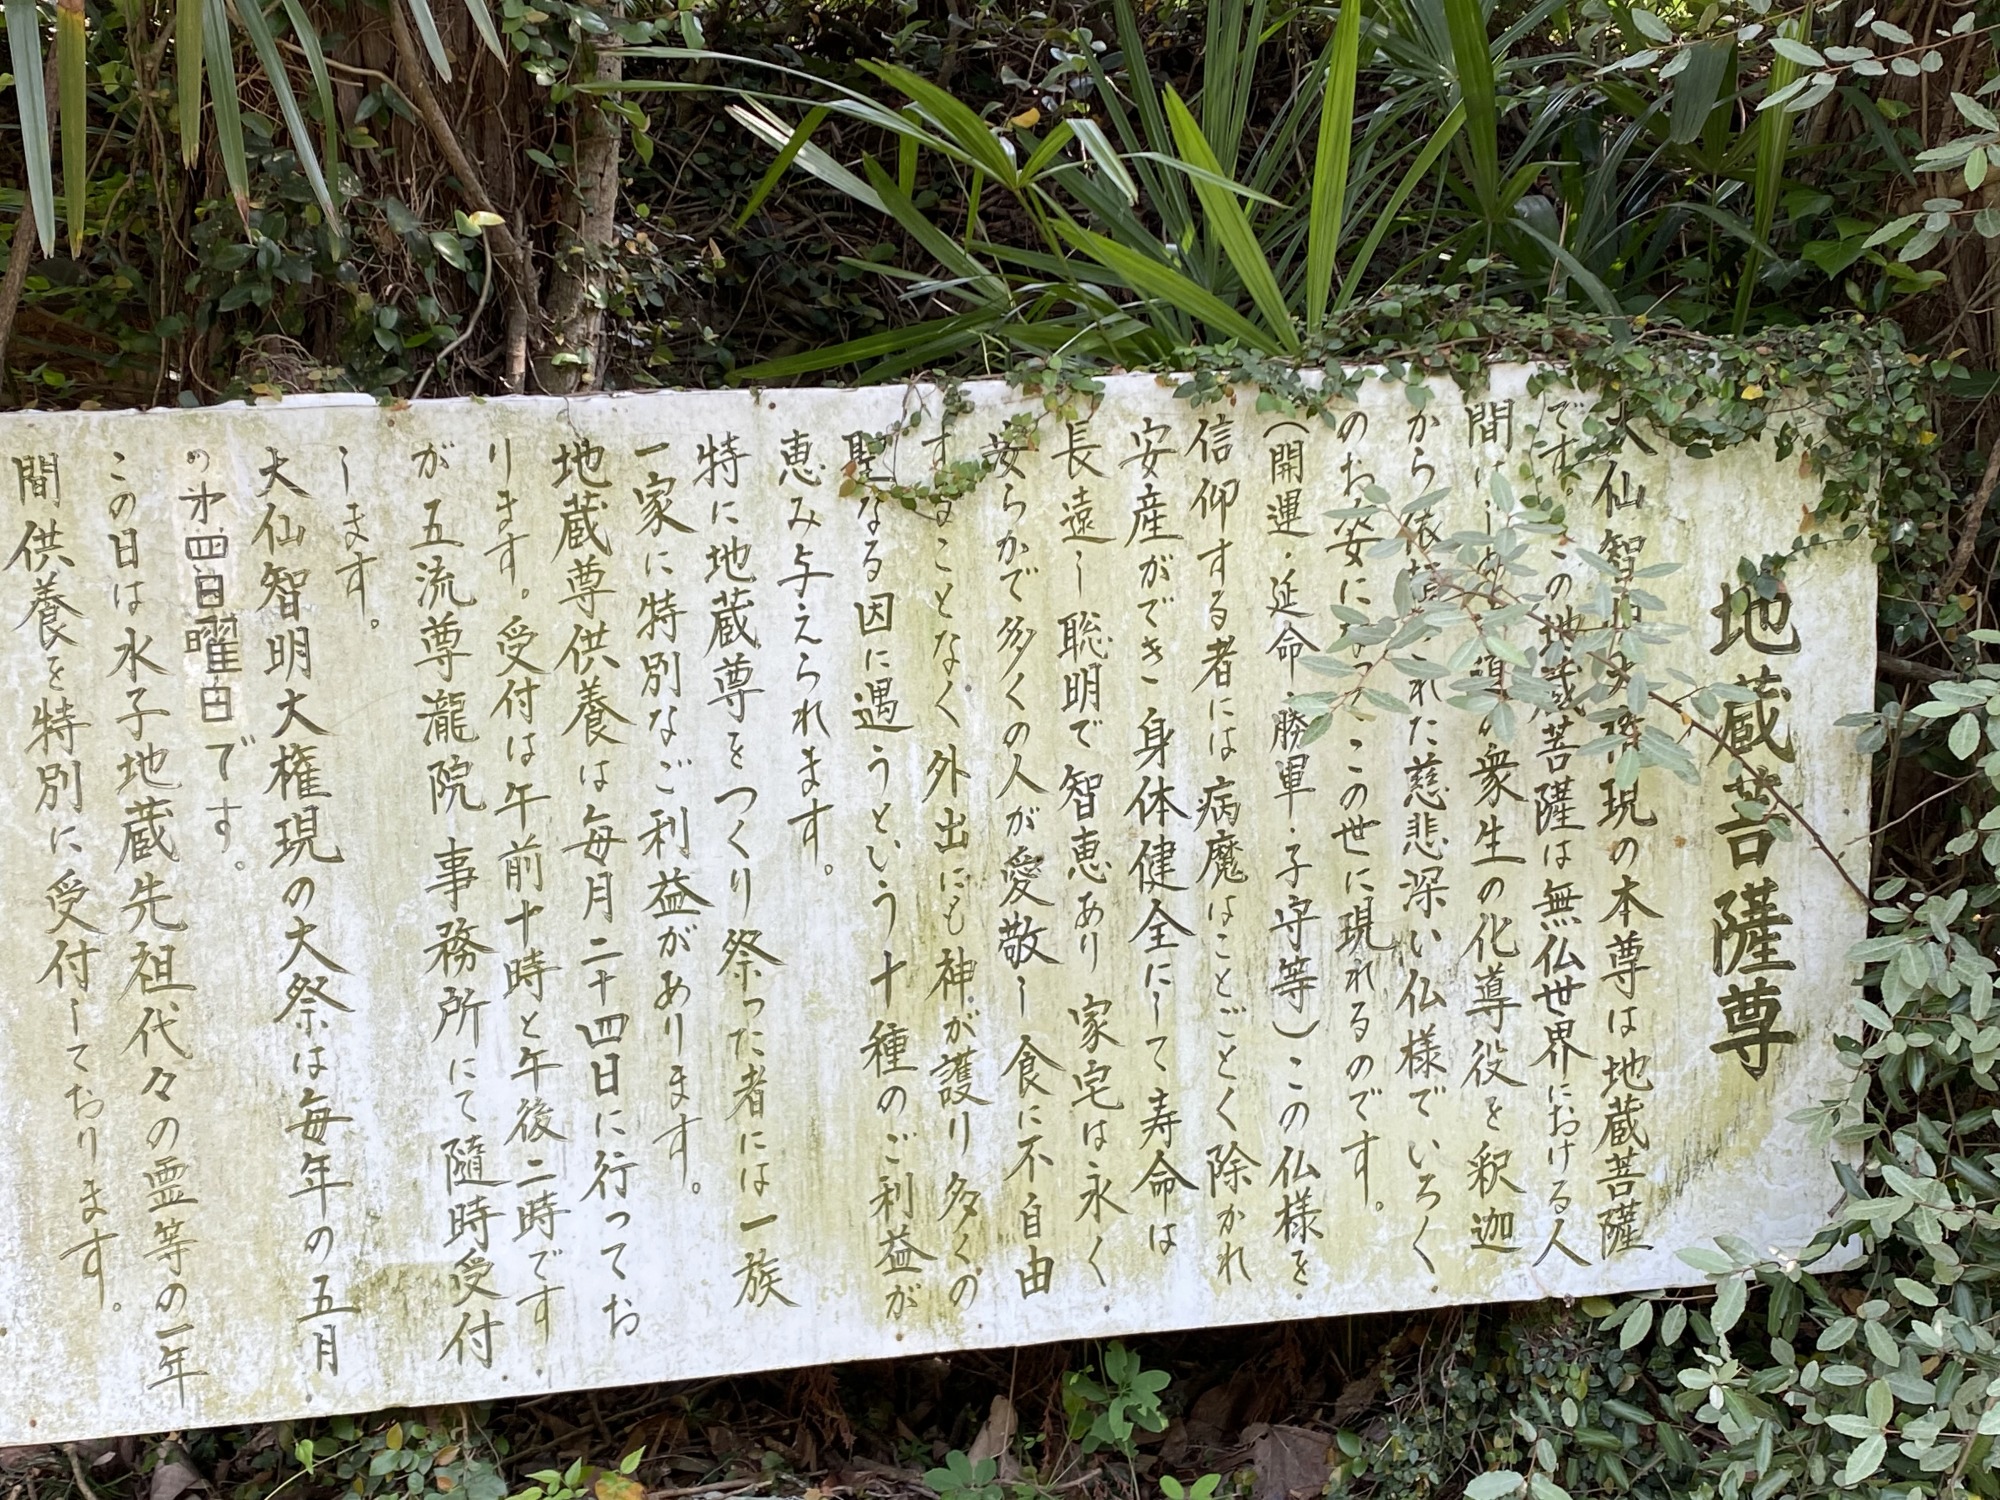 地蔵菩薩尊
大仙智明大権現の本尊は地蔵菩薩
です。この地蔵菩薩は無仏世界における人
間 衆生の化導役を釈迦
から依 れた慈悲深い仏様でいろく
のお姿になってこの世に現れるのです。
(開運・延命・勝軍・子守等)この仏様を
信仰する者には病魔はことごとく除かれ
安産ができ身体健全にして寿命は
長遠し聡明で智恵あり家宅は永く
安らかで多くの人が愛敬し食に不自由
することなく外出にも神が護り多くの
聖なる因に遇うという十種のご利益が
恵み与えられます。
特に地蔵尊をつくり祭った者には一族
一家に特別なご利益があります。
地蔵尊供養は毎月二十四日に行ってお
ります。受付は午前十時と午後二時です
が五流尊瀧院事務所にて随時受付
します。
大仙智明大権現の大祭は毎年の五月
の第四日曜日です。
この日は水子地蔵先祖代々の霊等の一年
間供養を特別に受付しております。